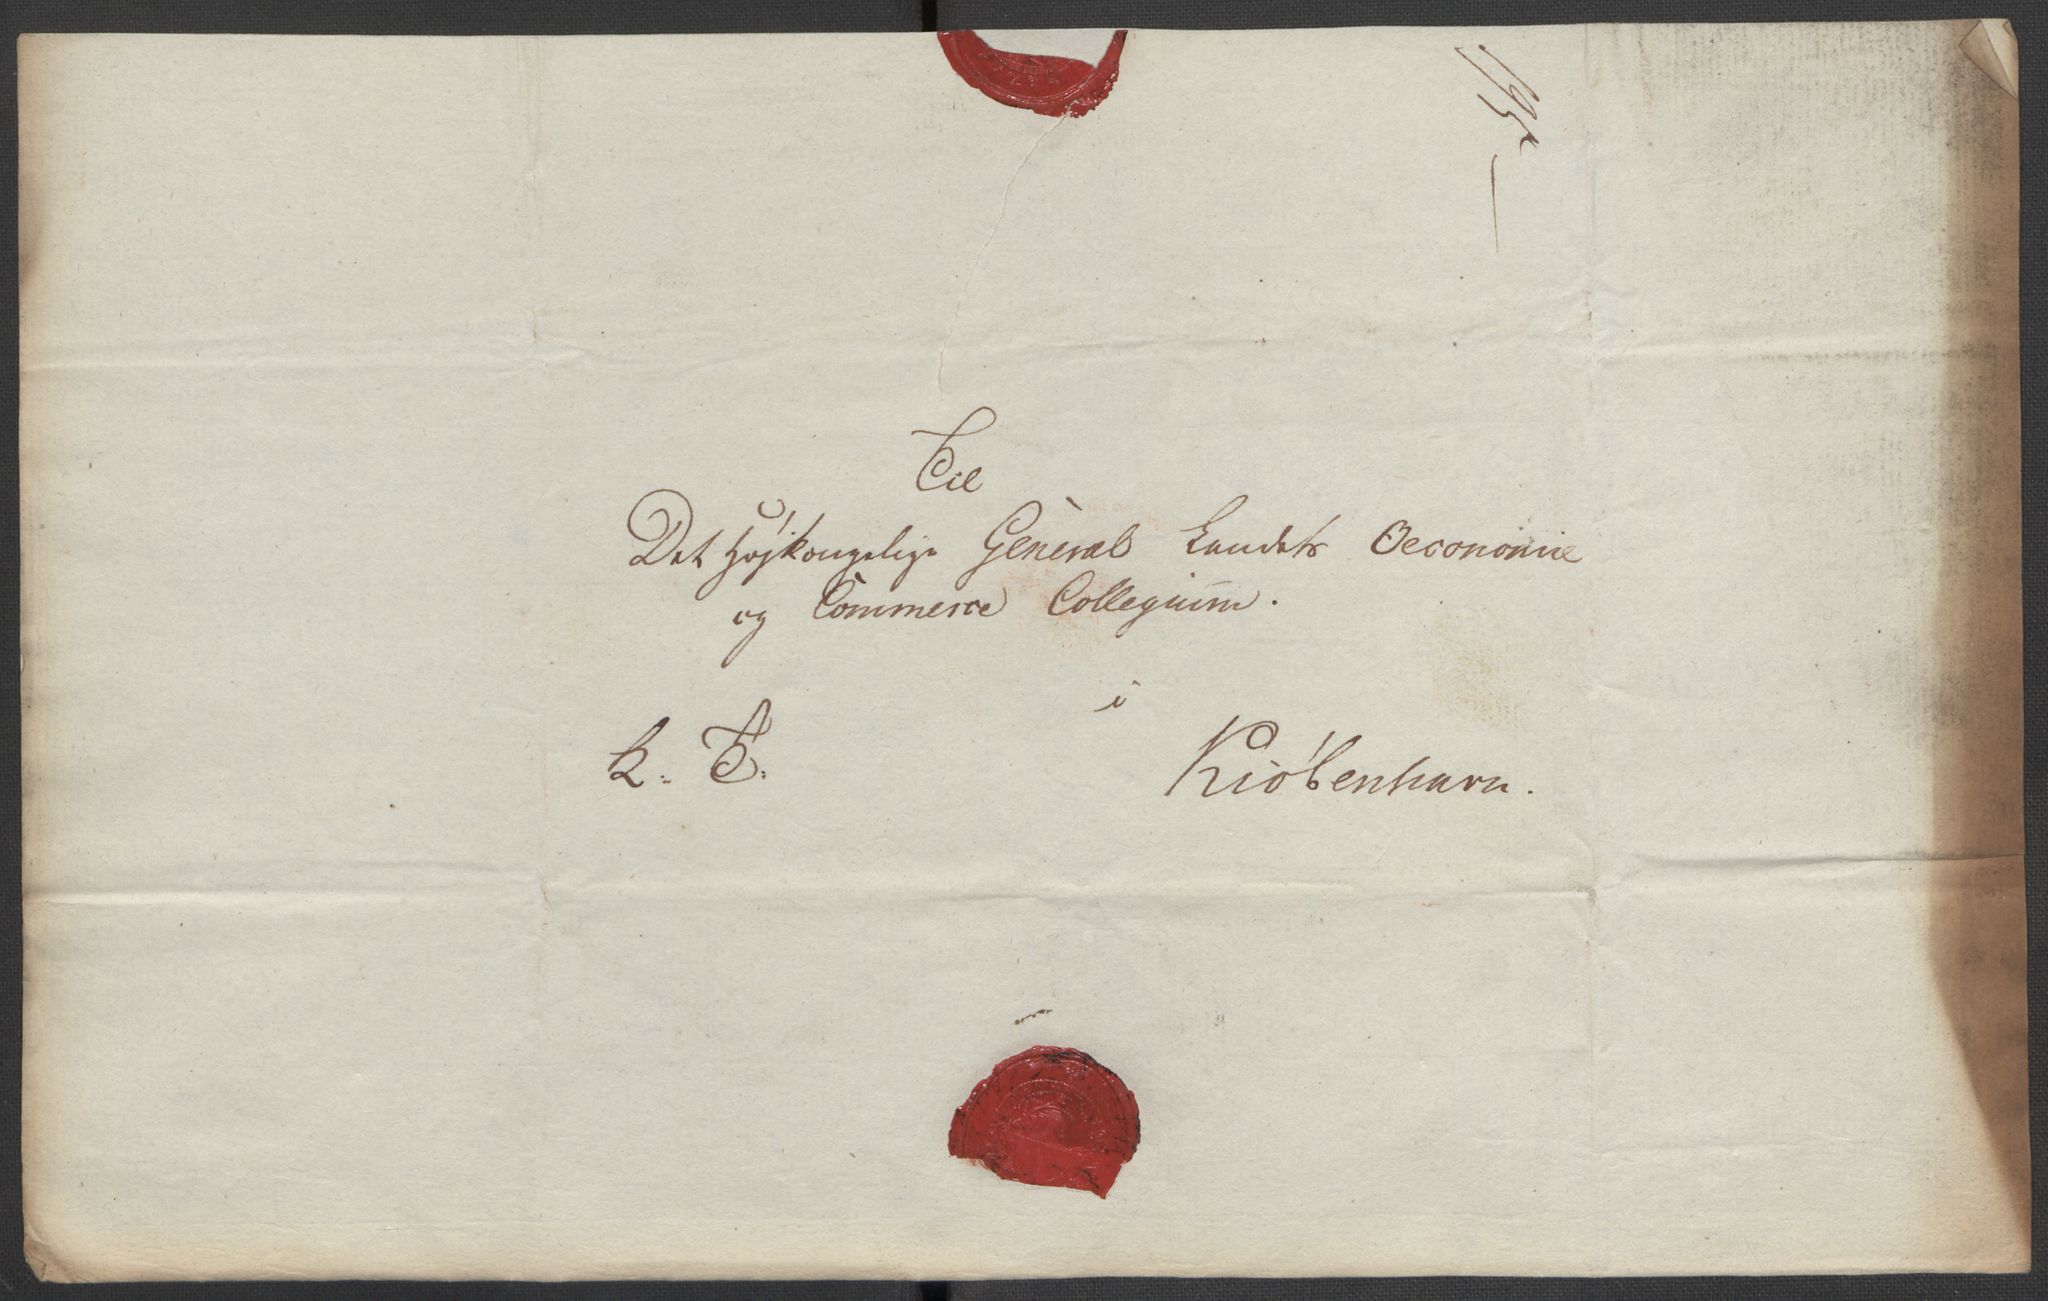 Til
Det Højkongelige General Landets Oeconomie
og Commerce Collegium.
i
K. T. Kiöbenhavn.